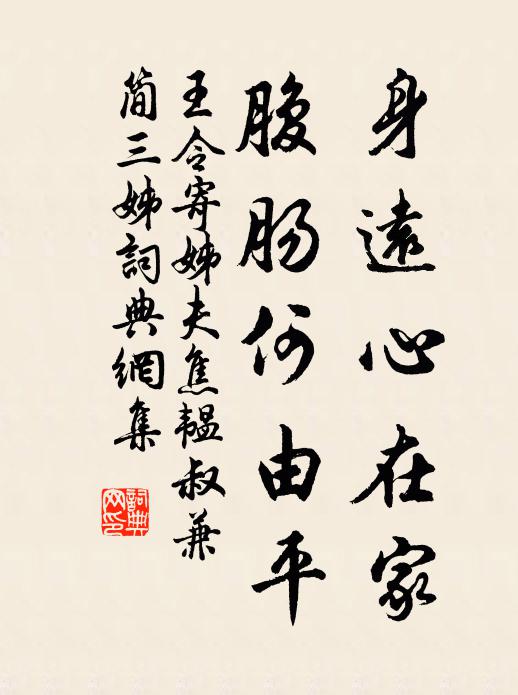 身遠心在家
腹腸何由平
王令寄姊夫焦韞叔兼
簡三姊詞典網集
詞典网印